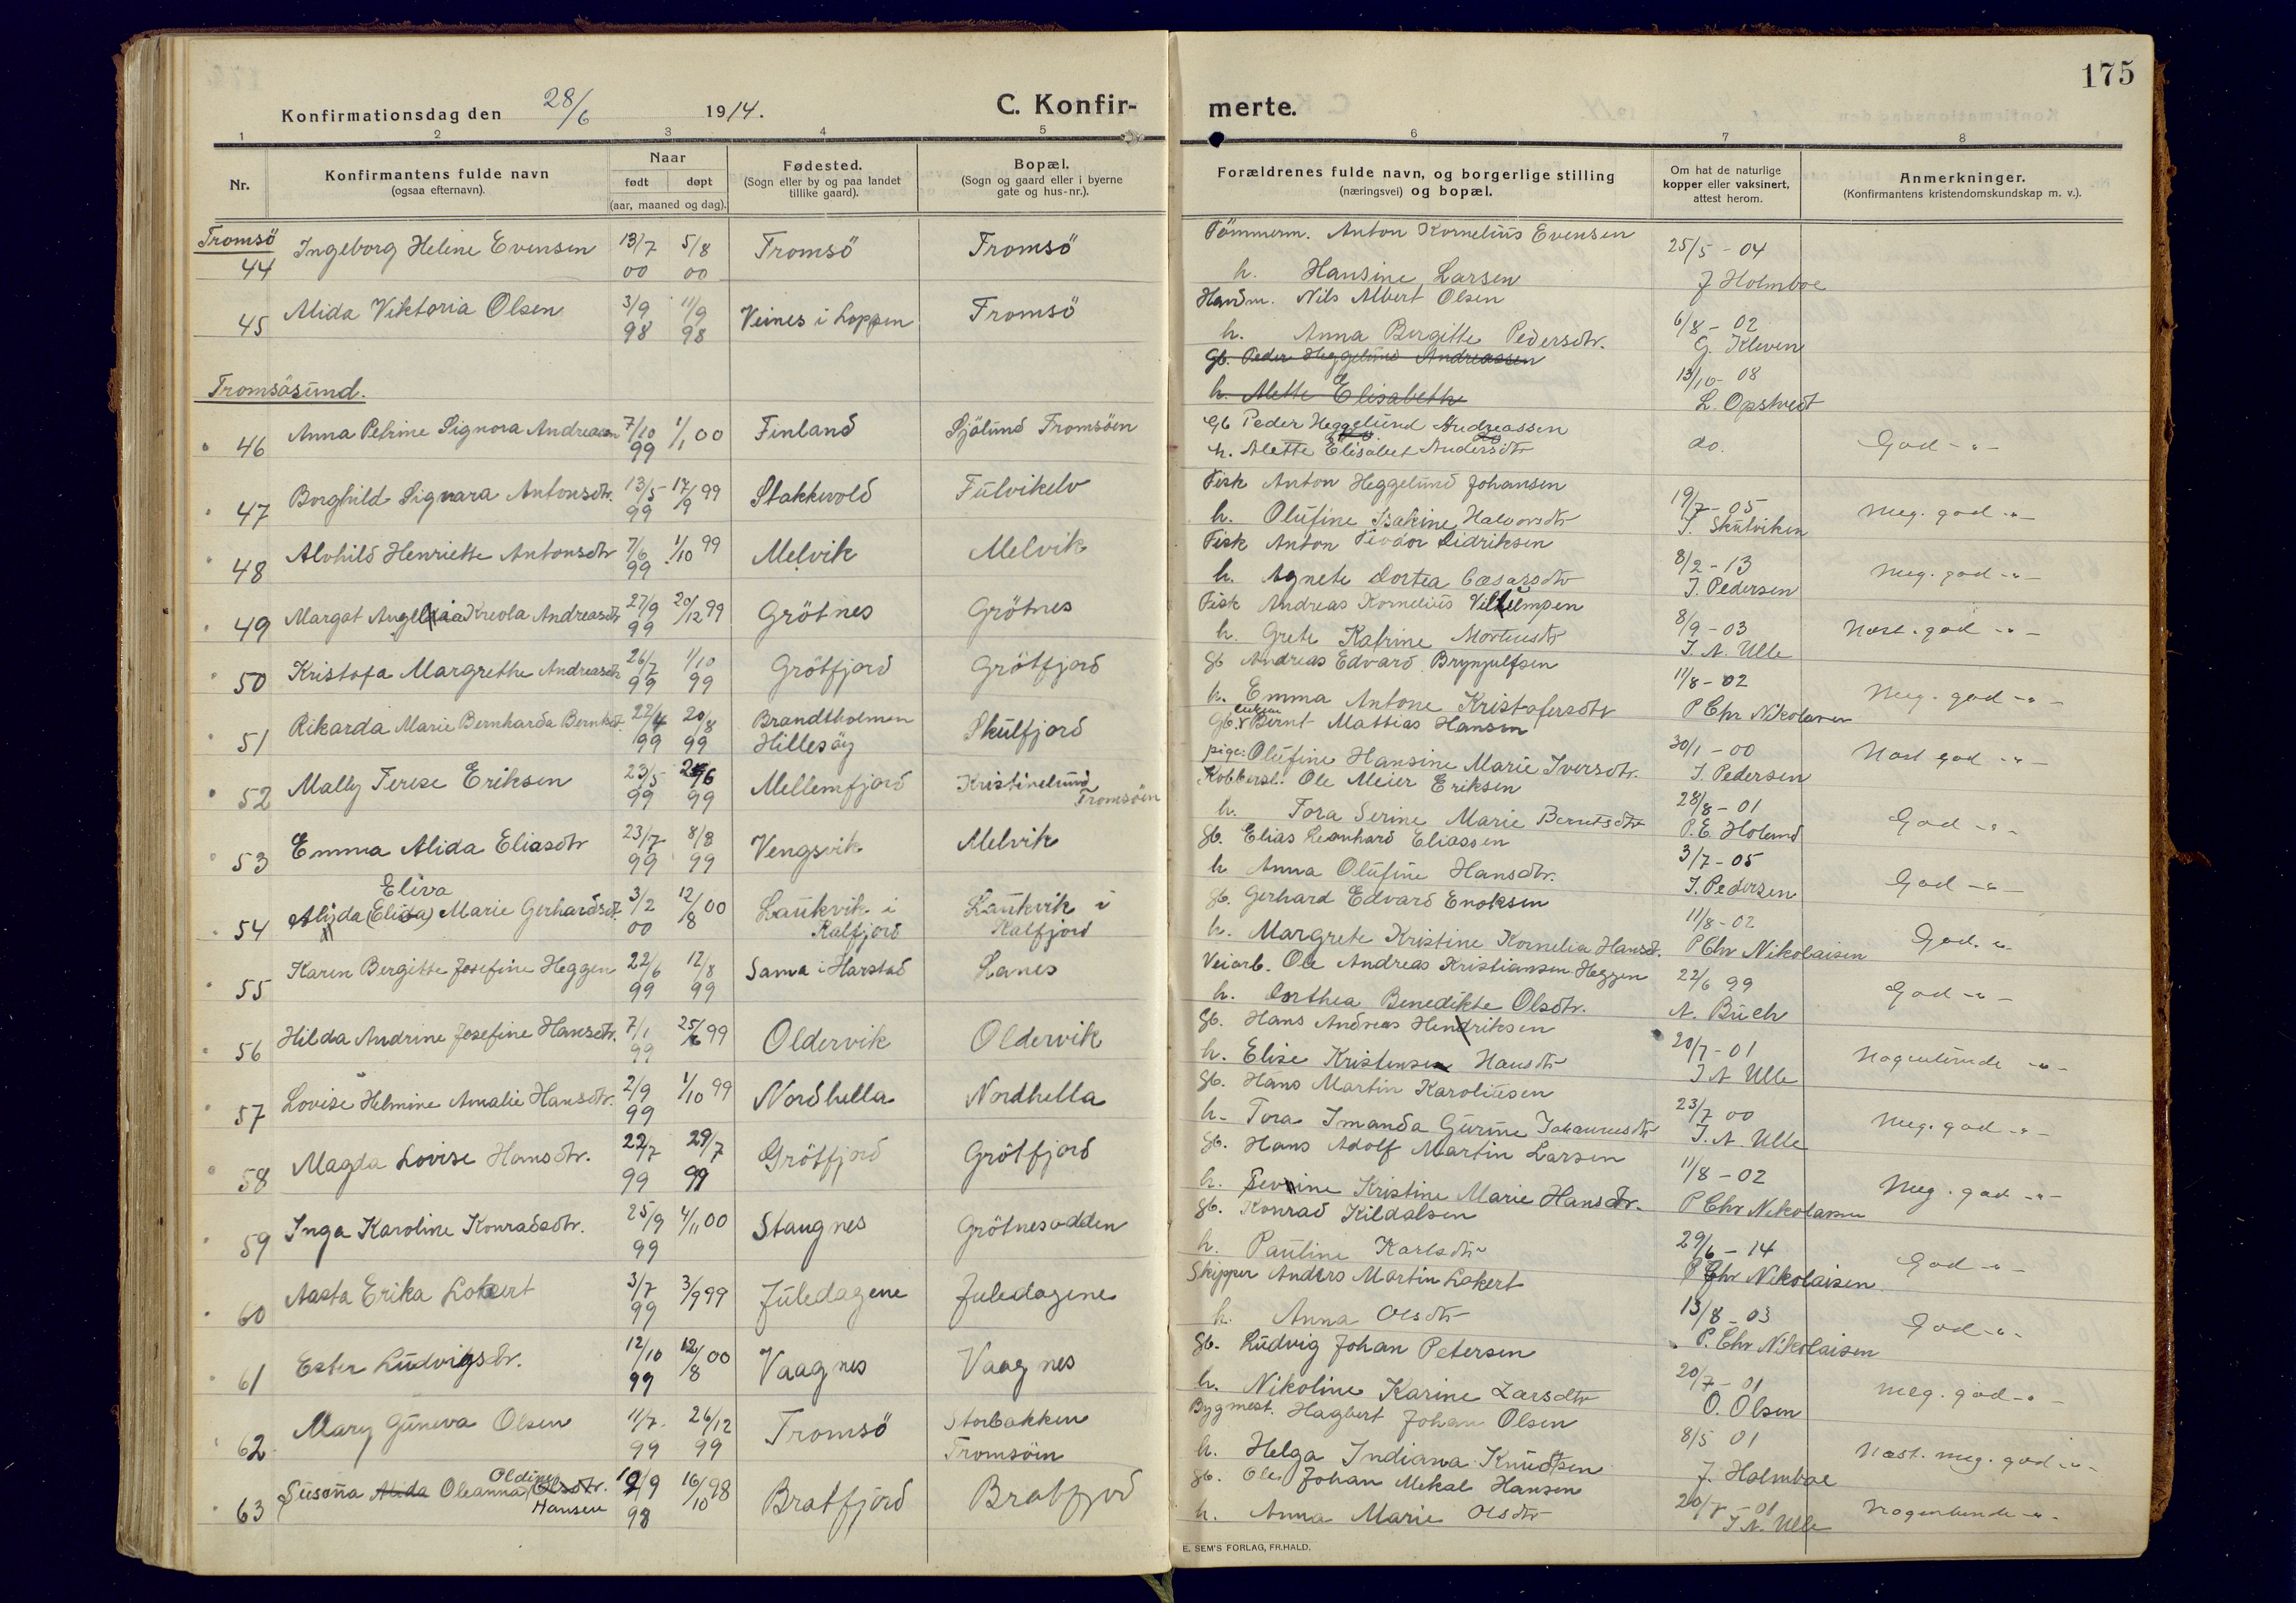 175
Konfirmationsdag den 28/6 1914. C. Konfirmerte.
1 2 3 4 5 6 7 8
Nr.
Konfirmantens fulde navn
(ogsaa efternavn).
Naar
født døpt
(aar, maaned og dag).
Fødested.
(Sogn eller by og paa landet
tillike gaard).
Bopæl.
(Sogn og gaard eller i byerne
gate og hus-nr.).
Forældrenes fulde navn, og borgerlige stilling
(næringsvei) og bopæl.
Om hat de naturlige
kopper eller vaksinert,
attest herom.
Anmerkninger.
(Konfirmantens kristendomskundskap m. v.).
Tromsö
44 Ingeborg Helene Evensen 13/7 00 5/8 00 Tromsö Tromsö
Tömmerm. Anton Kornelius Evensen
h. Hansine Larsen
25/5 - 04
J Holmboe
45 Alida Viktoria Olsen 3/9 98 11/9 98 Veines i Loppen Tromsö
Handm. Nils Albert Olsen
h. Anna Bergitte Pedersdtr.
6/8 - 02
G. Kleven
Tromsösund.
Gb. Peder Heggelund Andreassen
h. Alette Elisabeth
13/10 - 08
L. Opstvedt
46 Anna Petrine Signora Andreasen 7/10 99 1/1 00 Finland Sjölund Tromsöen
Gb Peder Heggelund Andreassen
h. Alette Elisabet Andersdtr
do.
God -"-
47 Borghild Signara Antonsdtr. 13/5 99 17/9 99 Stakkvold Tulvikelv
Fisk Anton Heggelund Johansen
h. Olufine Isakine Halvorsdtr
19/7 - 05
I. Skutviken
Meg. god -"-
48 Alvhild Henriette Antonsdtr 7/6 99 1/10 99 Melvik Melvik
Fisk Anton Teodor Didriksen
h. Agnete Dortea Cæsarsdtr
8/2 - 13
I. Pedersen
Meg. god -"-
49 Margot Angel Kreola Andreasdtr 27/9 99 20/12 99 Grötnes Grötnes
Fisk Andreas Kornelius Vilhelmsen
h. Grete Katrine Mortensdtr
8/9 - 03
I. A. Ulle
Næst. god -"-
50 Kristofa Margrethe Andreasdtr 26/7 99 1/10 99 Grötfjord Grötfjord
Gb Andreas Edvard Brynjulfsen
h. Emma Antone Kristofersdtr
11/8 - 02
P Chr Nikolaisen
Meg. god -"-
51 Rikarda Marie Bernharda Berntsdt. 22/4 99 20/8 99 Brandtholmen Hillesöy Skulfjord
Gb. Bernt Mattias Hansen
pige: Olufine Hansine Marie Iversdtr.
30/1 - 00
I. Pedersen
Næst god -"-
52 Mally Terese Eriksen 23/5 99 99 Mellemfjord Kristinelund Tromsöen
Kobbersl. Ole Meier Eriksen
h. Tora Serine Marie Berntsdtr
28/8 - 01
P. E. Holund
God -"-
53 Emma Alida Eliasdtr 23/7 99 8/8 99 Vengsvik Melvik
Gb. Elias Leonhard Eliassen
h Anna Olufine Hansdtr.
3/7 - 05
I. Pedersen
God -"-
Eliva
54 Alida (Elida) Marie Gerhardsdt. 3/2 00 12/8 00 Laukvik i Kalfjord Laukvik i Kalfjord
Gb. Gerhard Edvard Enoksen
h. Margrete Kristine Kornelia Hansdt.
11/8 - 02
P Chr Nikolaisen
God. "-
55 Karen Bergitte Josefine Heggen 22/6 99 12/8 99 Sama i Harstad Lanes
Veiarb. Ole Andreas Kristiansen Heggen
h. Dorthea Benedikte Olsdtr.
22/6 99
A. Buch
God -"-
56 Hilda Andrine Josefine Hansdtr. 7/1 99 25/6 99 Oldervik Oldervik
Gb. Hans Andreas Henriksen
h. Elise Kristensen Hansdtr
20/7 - 01
I A Ulle
Nogenlunde -"-
57 Lovise Helmine Amalie Hansdtr. 2/9 99 1/10 99 Nordhella Nordhella
Gb. Hans Martin Karoliusen
h. Tora Imanda Gurine Johannesdtr
23/7 00
I. A. Ulle
Meg. god -"-
58 Magda Lovise Hansdtr. 22/7 99 29/7 99 Grötfjord Grötfjord
Gb. Hans Adolf Martin Larsen
h. Sevrine Kristine Marie Hansdtr.
11/8 - 02
P Chr Nikolaisen
Meg. god -"-
59 Inga Karoline Konradsdtr. 25/9 99 4/11 00 Staugnes Grötnesodden
Gb. Konrad Kildalsen
h. Pauline Karlsdtr
29/6 - 14
P Chr Nikolaisen
God -"-
60 Aasta Erika Lokert 3/7 99 3/9 99 Juledagene Juledagene
Skipper Anders Martin Lokert
h. Anna Olsdtr
13/8 - 03
P. Chr Nikolaisen
God -"-
61 Ester Ludvigsdtr. 12/10 99 12/8 00 Vaagnes Vaagnes
Gb. Ludvig Johan Petersen
h. Nikoline Karine Larsdtr
20/7 - 01
O. Olsen
Meg. god -"-
62 Mary Guneva Olsen 11/7 99 26/12 99 Tromsö Storbakken Tromsöen
Bygmest. Hagbert Johan Olsen
h. Helga Indiana Knudtsen
8/5 01
J. Holmboe
Næst. meg. god -"-
63 Susanna Alida Oleanna Oldine Olsdtr. Hansen 19/9 98 16/10 98 Bratfjord Bratfjord
Gb. Ole Johan Mekal Hansen
h. Anna Marie Olsdtr
20/7 - 01
I A. Ulle
Nogenlunde -"-
E. SEM'S FORLAG, FR.HALD.